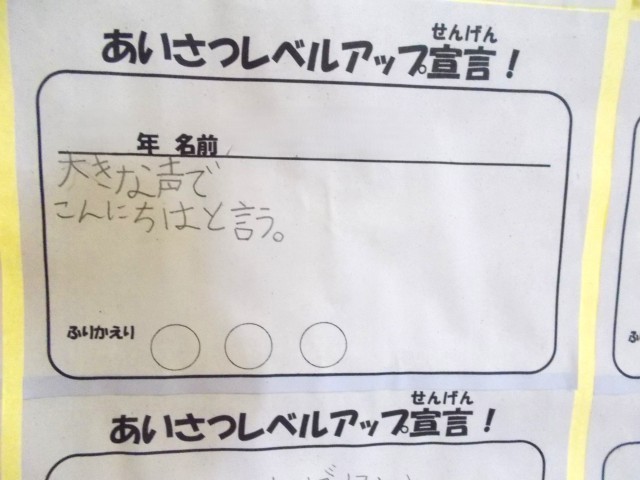 せんげん
あいさつレベルアップ宣言！
年 名前
大きな声で
こんにちはと言う。
ふりかえり
せんげん
あいさつレベルアップ宣言！